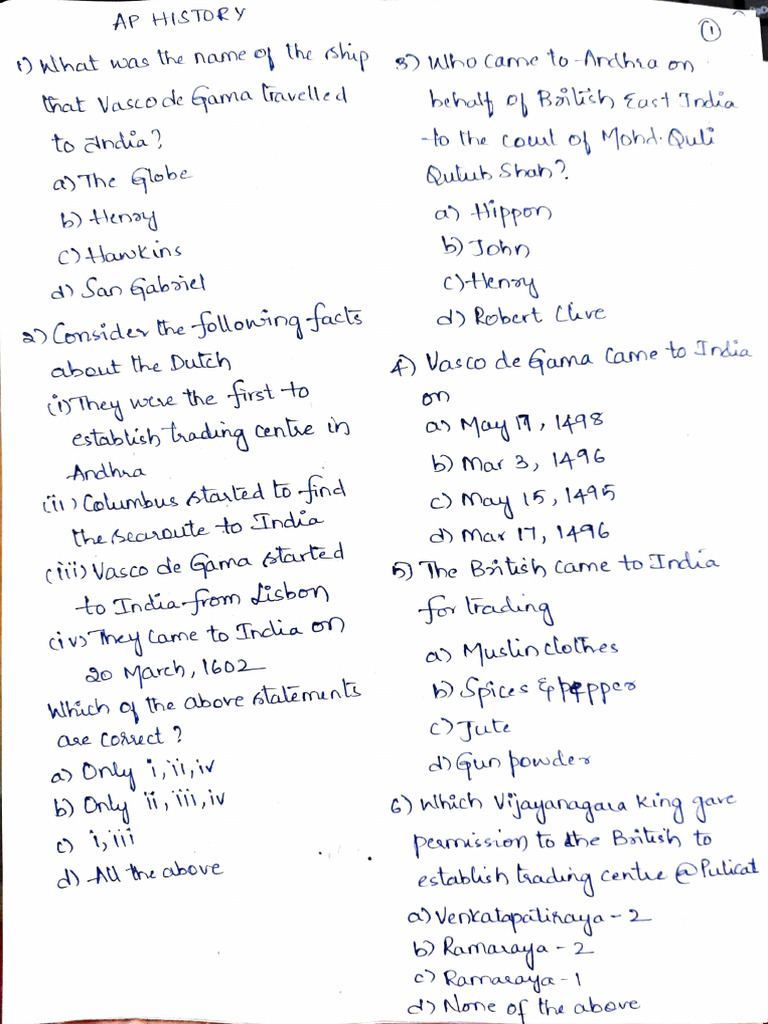 AP HISTORY
1
1) What was the name of the ship
that Vasco de Gama travelled
to India?
a) The Globe
b) Henry
c) Hawkins
d) San Gabriel
2) Consider the following facts
about the Dutch
(i) They were the first to
establish trading centre in
Andhra
(ii) Columbus started to find
the searoute to India
(iii) Vasco de Gama started
to India from Lisbon
(iv) They came to India on
20 March, 1602
Which of the above statements
are correct?
a) Only i, ii, iv
b) Only ii, iii, iv
c) i, iii
d) All the above
3) Who came to Andhra on
behalf of British East India
to the court of Mohd. Quli
Qutub Shah?
a) Hippon
b) John
c) Henry
d) Robert Clive
4) Vasco de Gama came to India
on
a) May 17, 1498
b) Mar 3, 1496
c) May 15, 1495
d) Mar 17, 1496
5) The British came to India
for trading
a) Muslin clothes
b) Spices & pepper
c) Jute
d) Gun powder
6) Which Vijayanagara King gave
permission to the British to
establish trading centre @ Pulicat
a) Venkatapatiraya - 2
b) Ramaraya - 2
c) Ramaraya - 1
d) None of the above